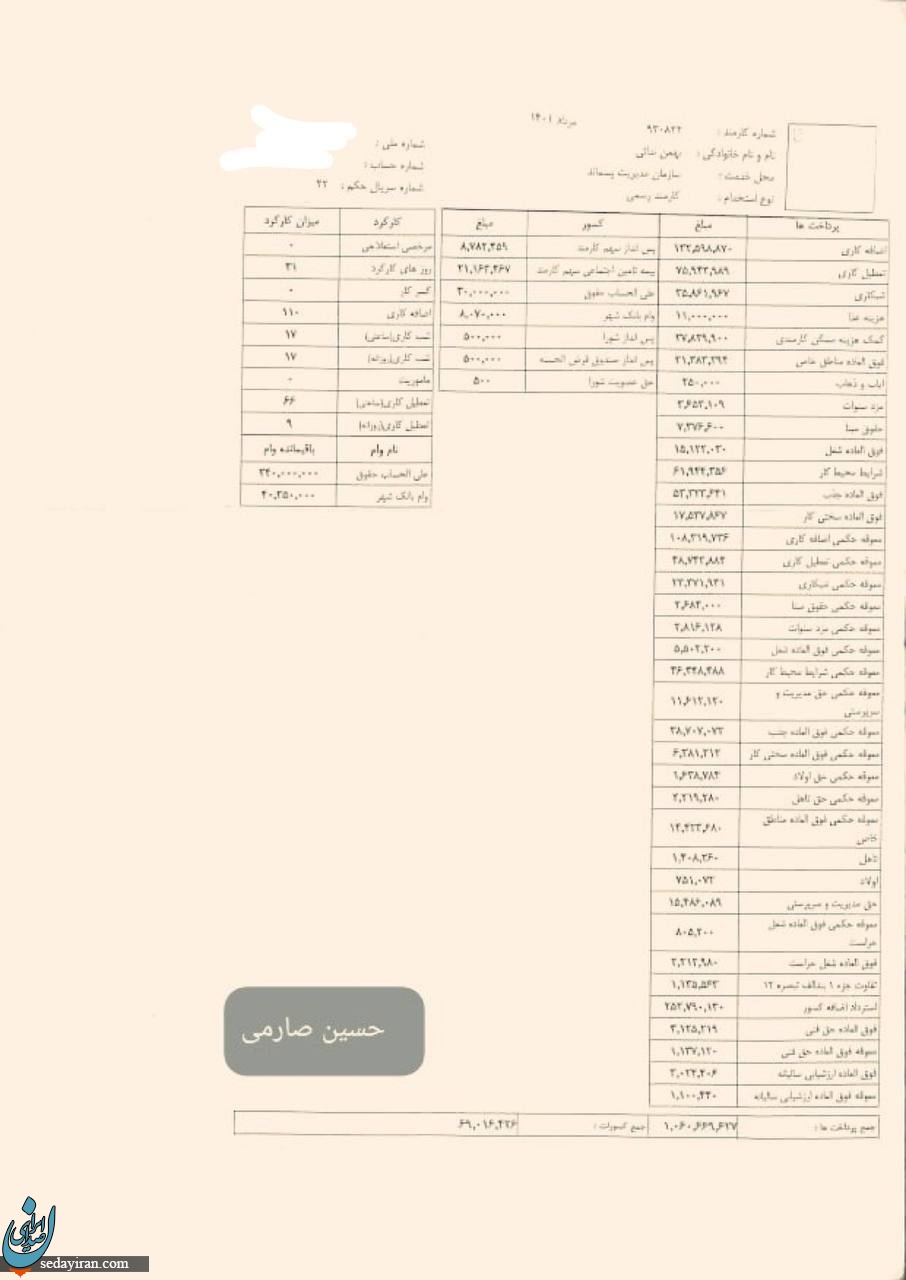 مرداد ۱۴۰۱
شماره کارمند : ۹۳۰۸۲۲
نام و نام خانوادگی : بهمن
محل خدمت : سازمان مدیریت پسماند
نوع استخدام : کارمند رسمی
شماره ملی :
شماره حساب :
شماره سریال حکم : ۲۲
پرداخت ها مبلغ
اضافه کاری ۱۳۲,۵۹۸,۸۷۰
تعطیل کاری ۷۵,۹۴۳,۹۸۹
شبکاری ۳۵,۸۶۱,۹۶۷
هزینه غذا ۱۱,۰۰۰,۰۰۰
کمک هزینه مسکن کارمندی ۳۷,۸۳۹,۹۰۰
فوق العاده مناطق خاص ۲۱,۳۸۳,۲۹۴
ایاب و ذهاب ۲۵۰,۰۰۰
مزد سنوات ۳,۶۵۳,۱۰۹
حقوق مبنا ۷,۳۷۶,۶۰۰
فوق العاده شغل ۱۵,۱۲۲,۰۳۰
شرایط محیط کار ۶۱,۹۴۴,۳۵۶
فوق العاده جذب ۵۳,۳۲۳,۶۴۱
فوق العاده سختی کار ۱۷,۵۳۷,۸۶۷
معوقه حکمی اضافه کاری ۱۰۸,۳۱۹,۷۳۶
معوقه حکمی تعطیل کاری ۴۸,۷۴۳,۸۸۴
معوقه حکمی شبکاری ۲۳,۳۷۱,۹۳۱
معوقه حکمی حقوق مبنا ۲,۶۸۴,۰۰۰
معوقه حکمی مزد سنوات ۲,۸۱۶,۱۲۸
معوقه حکمی فوق العاده شغل ۵,۵۰۲,۲۰۰
معوقه حکمی شرایط محیط کار ۳۶,۳۴۸,۴۸۸
معوقه حکمی حق مدیریت و
سرپرستی ۱۱,۶۱۲,۱۲۰
معوقه حکمی فوق العاده جذب ۳۸,۷۰۷,۰۷۲
معوقه حکمی فوق العاده سختی کار ۶,۳۸۱,۳۱۲
معوقه حکمی حق اولاد ۱,۶۳۸,۷۸۴
معوقه حکمی حق تاهل ۲,۲۱۹,۲۸۰
معوقه حکمی فوق العاده مناطق
خاص ۱۴,۴۲۳,۶۸۰
تاهل ۱,۴۰۸,۲۶۰
اولاد ۷۵۱,۰۷۲
حق مدیریت و سرپرستی ۱۵,۴۸۶,۰۸۹
معوقه حکمی فوق العاده شغل
حراست ۸۰۵,۲۰۰
فوق العاده شغل حراست ۲,۲۱۲,۹۸۰
تفاوت جزء ۱ بندالف تبصره ۱۲ ۱,۱۳۵,۵۶۳
استرداد اضافه کسور ۲۵۲,۷۹۰,۱۳۰
فوق العاده حق فنی ۳,۱۲۵,۲۱۹
معوقه فوق العاده حق فنی ۱,۱۳۷,۱۲۰
فوق العاده ارزشیابی سالیانه ۳,۰۲۴,۴۰۶
معوقه فوق العاده ارزشیابی سالیانه ۱,۱۰۰,۴۴۰
کسور مبلغ
پس انداز سهم کارمند ۸,۷۸۲,۴۵۹
بیمه تامین اجتماعی سهم کارمند ۲۱,۱۶۳,۴۶۷
علی الحساب حقوق ۳۰,۰۰۰,۰۰۰
وام بانک شهر ۸,۰۷۰,۰۰۰
پس انداز شورا ۵۰۰,۰۰۰
پس انداز صندوق قرض الحسنه ۵۰۰,۰۰۰
حق عضویت شورا ۵۰۰
کارکرد میزان کارکرد
مرخصی استعلاجی ۰
روز های کارکرد ۳۱
کسر کار ۰
اضافه کاری ۱۱۰
شب کاری(ساعتی) ۱۷
شب کاری(روزانه) ۱۷
ماموریت ۰
تعطیل کاری(ساعتی) ۶۶
تعطیل کاری(روزانه) ۹
نام وام باقیمانده وام
علی الحساب حقوق ۲۴۰,۰۰۰,۰۰۰
وام بانک شهر ۴۰,۳۵۰,۰۰۰
حسین صارمی
جمع پرداخت ها : ۱,۰۶۰,۶۶۹,۶۲۷ جمع کسورات : ۶۹,۰۱۶,۴۲۶
صدای ایران
sedayiran.com